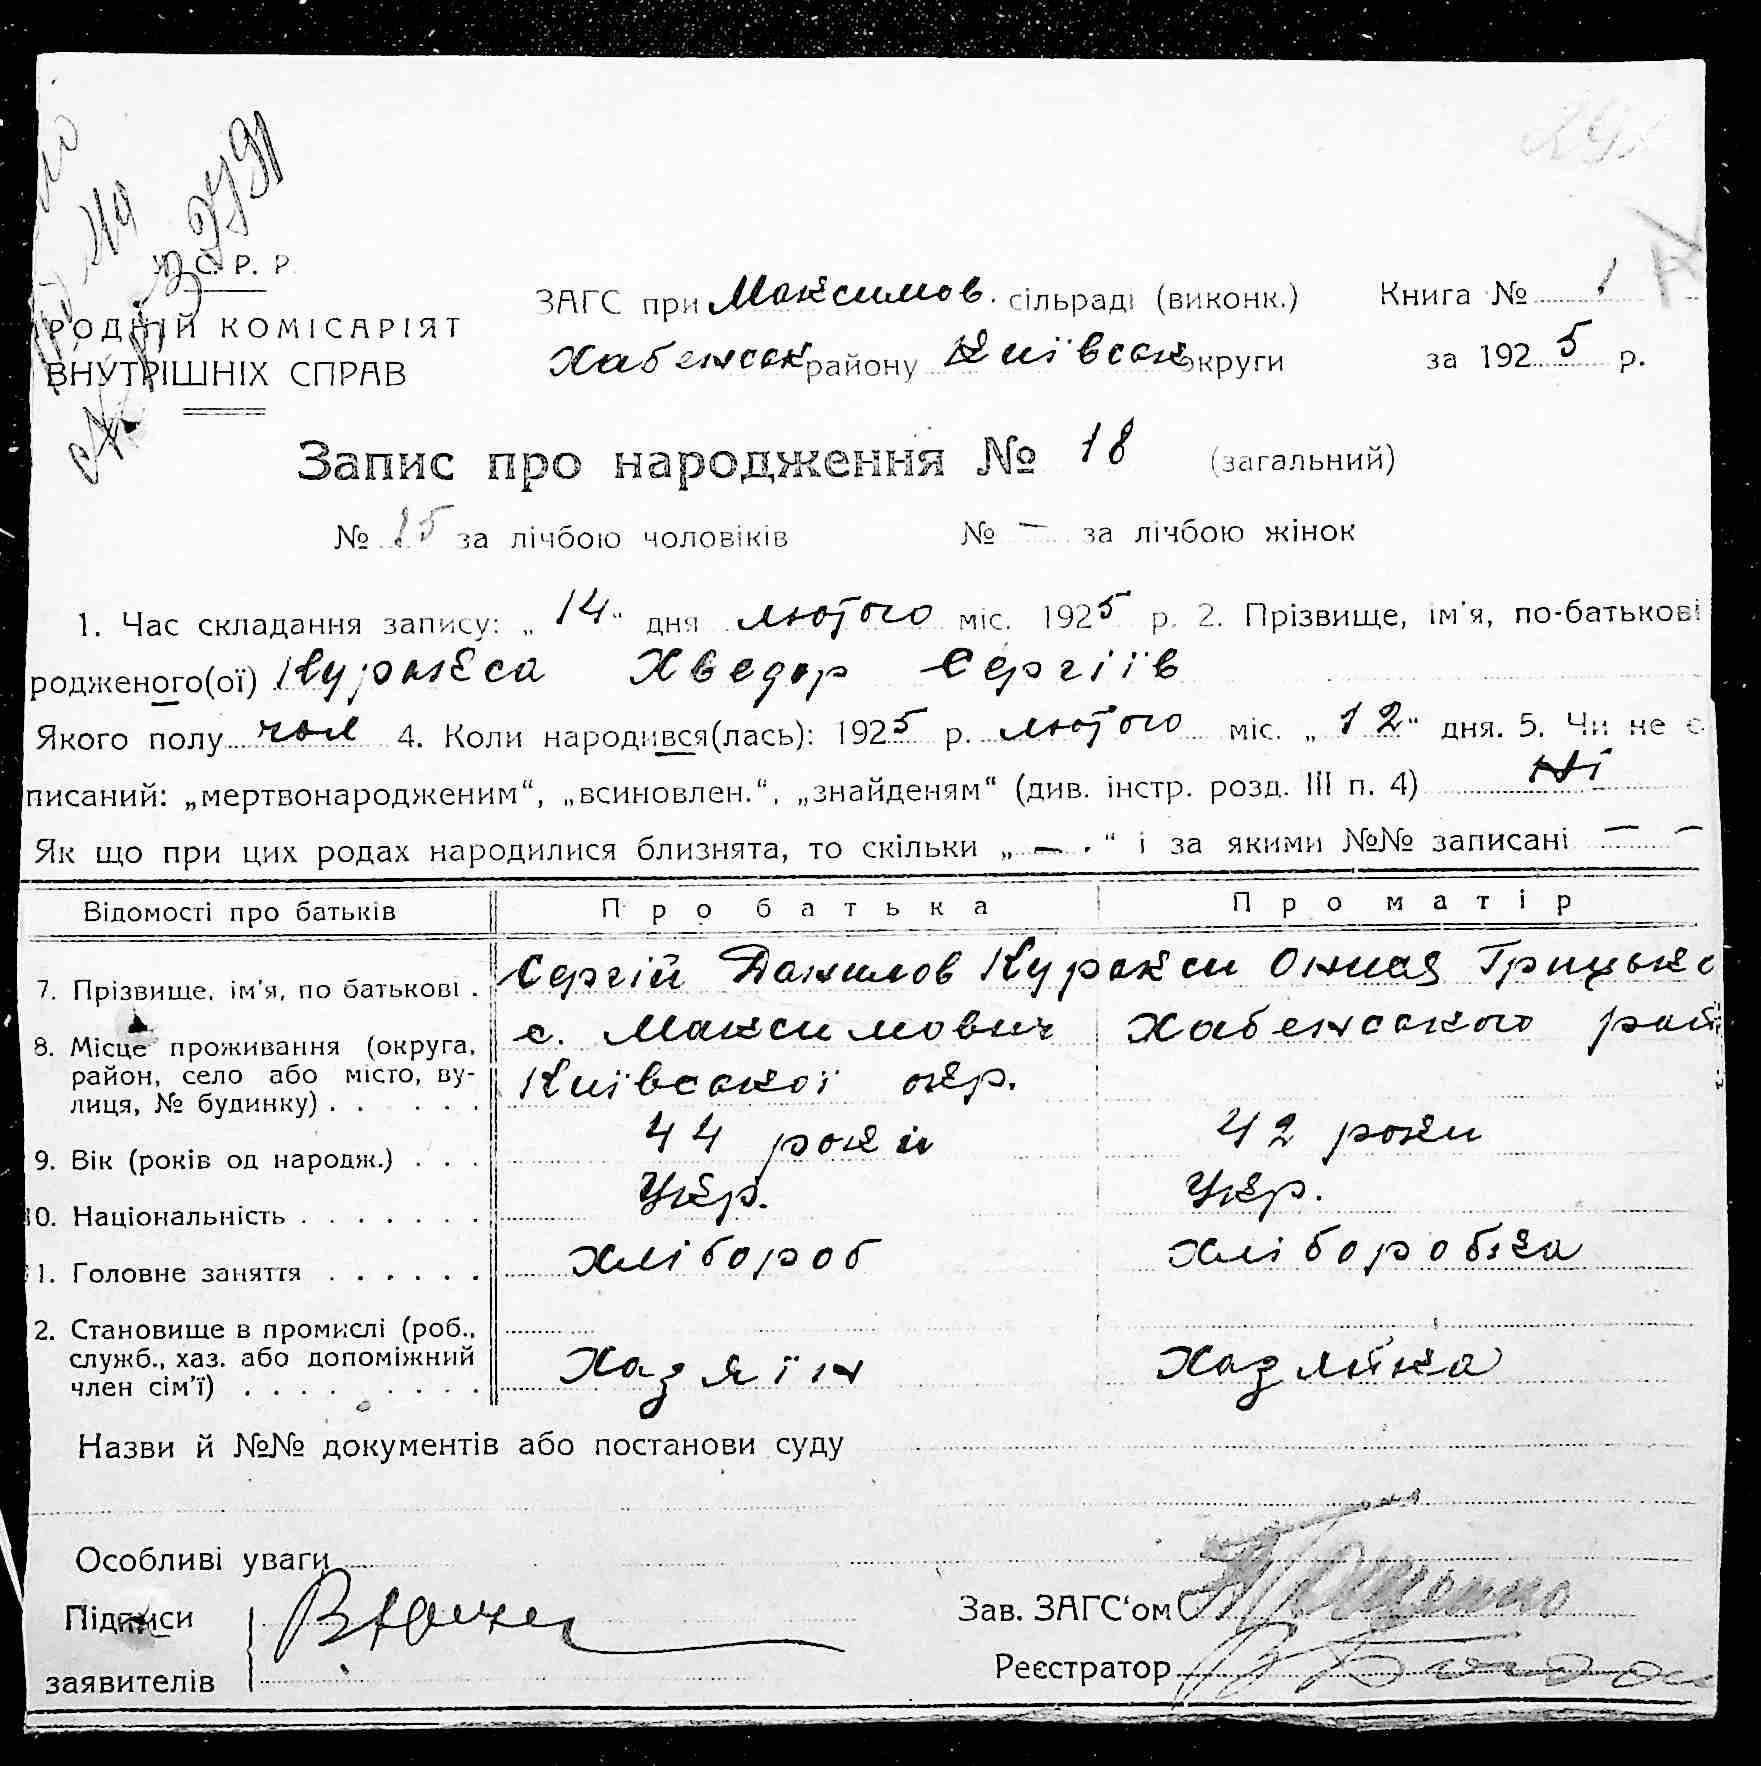 291
32791
У. С. Р. Р.
РОДНІЙ КОМІСАРІЯТ
ВНУТРІШНІХ СПРАВ
ЗАГС при Максимов. сільраді (виконк.)
Хабенськ району Київськ округи
Книга № 1
за 1925 р.
Запис про народження № 18 (загальний)
№ 15 за лічбою чоловіків № — за лічбою жінок
1. Час складання запису: „14“ дня лютого міс. 1925 р. 2. Прізвище, ім'я, по-батькові
родженого(ої) Куракса Хведор Сергіїв
Якого полу чол 4. Коли народився(лась): 1925 р. лютого міс. „12“ дня. 5. Чи не є
писаний: „мертвонародженим“, „всиновлен.“, „знайденям“ (див. інстр. розд. III п. 4) Ні
Як що при цих родах народилися близнята, то скільки „ — . “ і за якими №№ записані — —
Відомості про батьків Про батька Про матір
7. Прізвище, ім'я, по батькові . Сергій Данилов Куракси Грицьк
8. Місце проживання (округа, с. Максимович Хабенського рай
район, село або місто, ву- Київської окр.
лиця, № будинку) . . . . . .
9. Вік (років од народж.) . . . 44 роки 42 роки
0. Національність . . . . . . . Укр. Укр.
1. Головне заняття . . . . . . Хлібороб Хліборобка
2. Становище в промислі (роб.,
служб., хаз. або допоміжний Хазяїн Хазяйка
член сім'ї) . . . . . . . . .
Назви й №№ документів або постанови суду
Особливі уваги
Підписи
заявителів
Зав. ЗАГС‘ом
Реєстратор